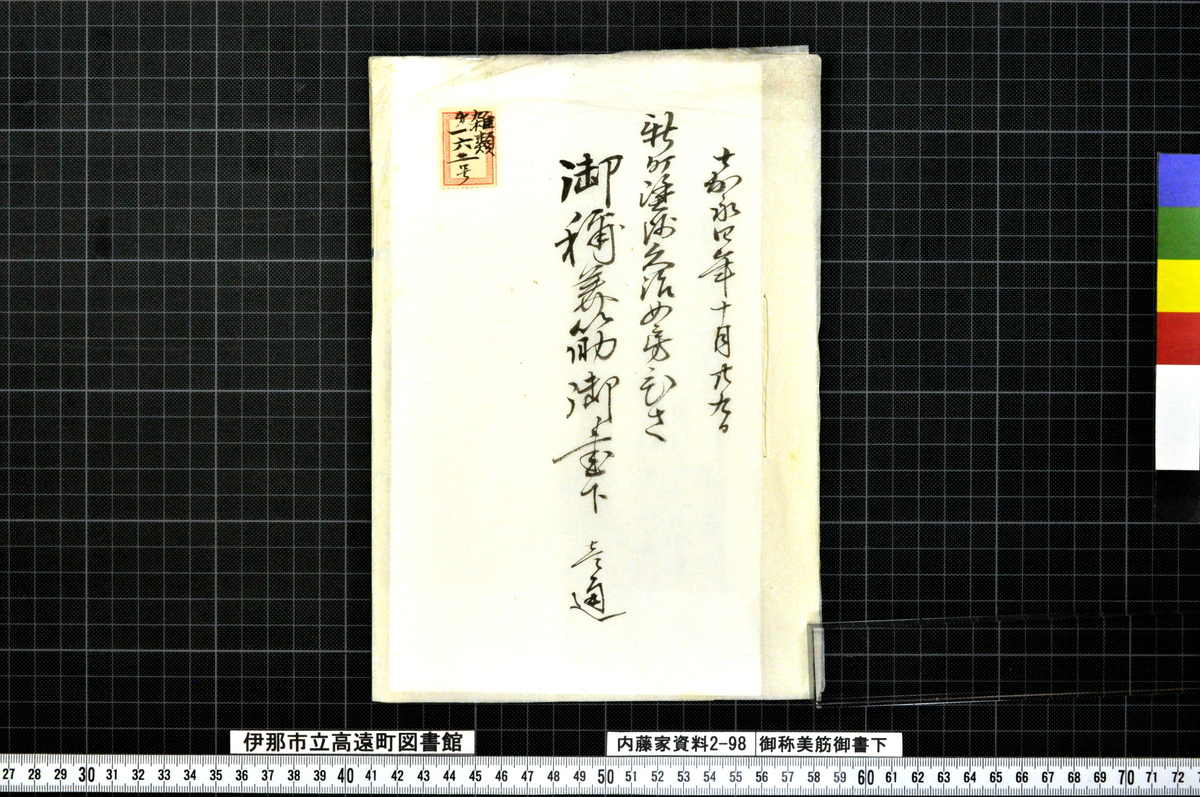 嘉永四年十月廿九日
新町塗師久治女房むさ
御称美筋御書下 壱通
雑類
第一六二号
伊那市立高遠町図書館
内藤家資料2-98 御称美筋御書下
27 28 29 30 31 32 33 34 35 36 37 38 39 40 41 42 43 44 45 46 47 48 49 50 51 52 53 54 55 56 57 58 59 60 61 62 63 64 65 66 67 68 69 70 71 72